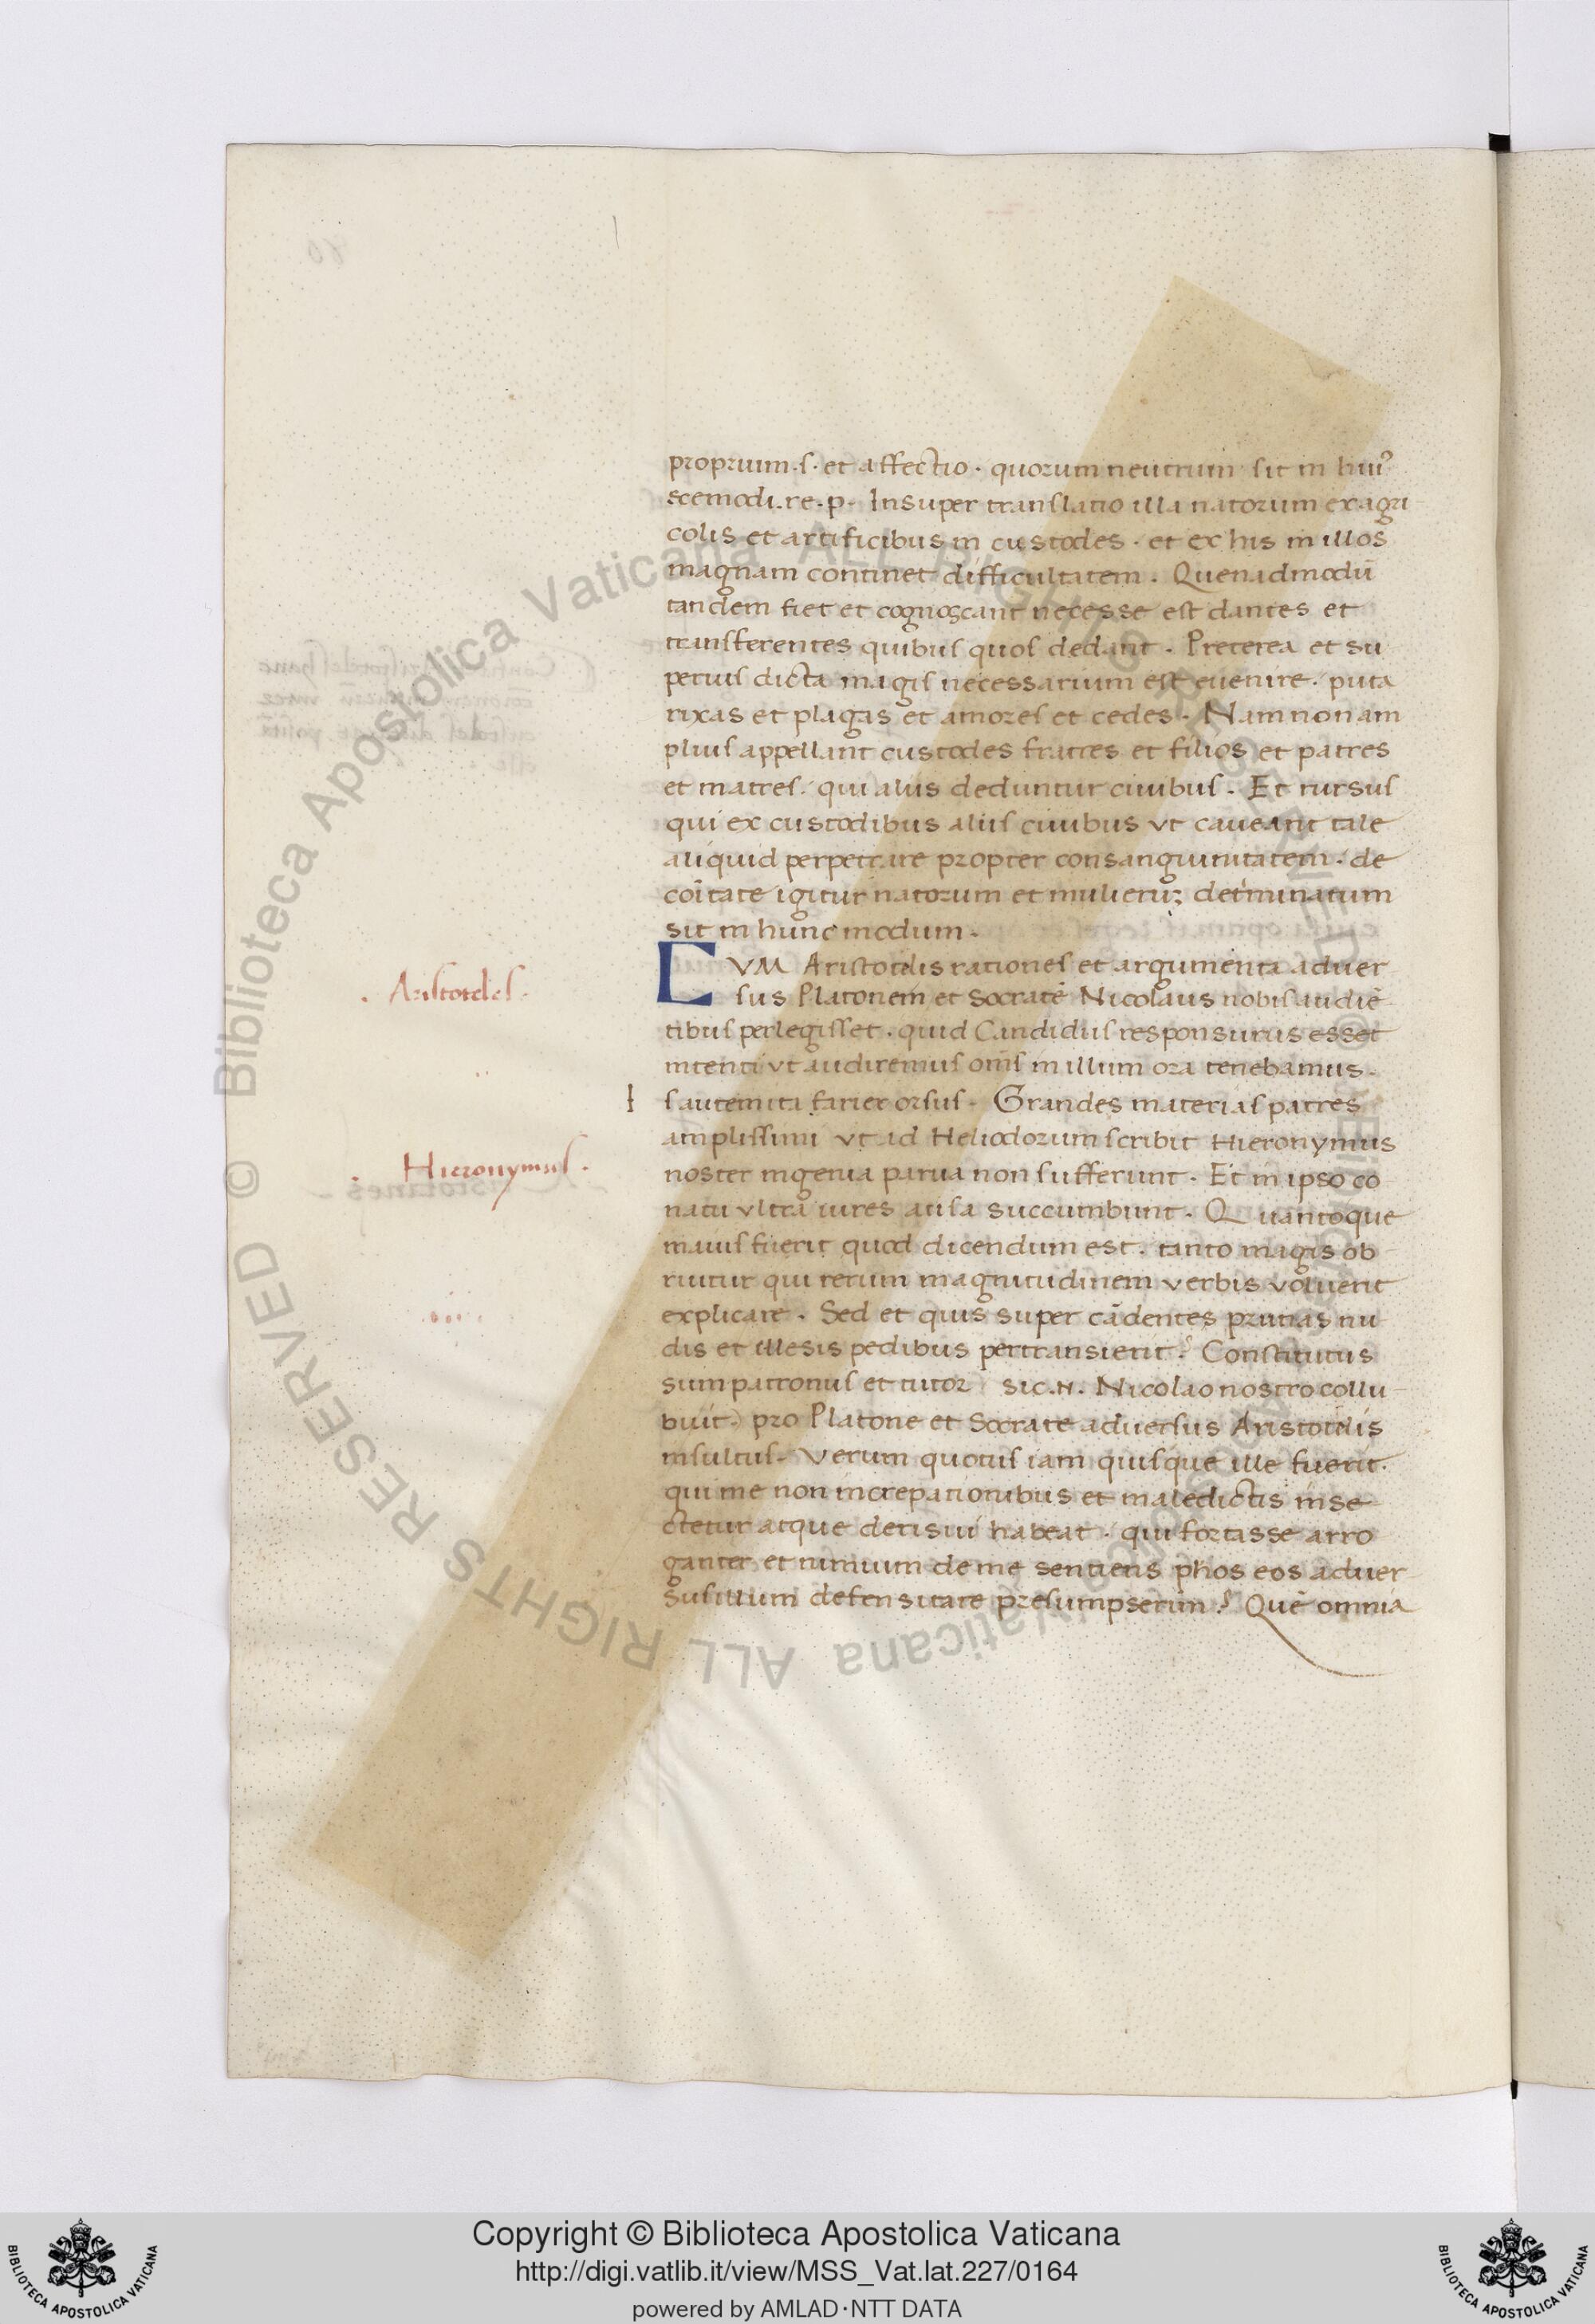 proprium .s. et affectio . quorum neutrum sit in hui⁹
scemodi .re.p. Insuper translatio illa natorum ex agri
colis et artificibus in custodes . et ex his in illos
magnam continet difficultatem . Quenadmodū
tandem fiet et cognoscant necesse est dantes et
transferentes quibus quos dedant . Preterea et su
perius dicta magis necessarium est euenire . puta
rixas et plagas et amores et cedes . Nam non am
plius appellant custodes fratres et filios et patres
et matres . qui aliis deduntur ciuibus . Et rursus
qui ex custodibus aliis ciuibus vt caueant tale
aliquid perpetrare propter consanguinitatem . de
coītate igitur natorum et mulierū determinatum
sit in hunc modum .
CVM Aristotelis rationes et argumenta aduer
Aristoteles .
sus Platonem et Socratē Nicolaus nobis audiē
tibus perlegisset . quid Candidus responsurus esset
intenti vt audiremus omīs in illum ora tenebamus .
Is autem ita farier orsus . Grandes materias patres
amplissimi vt ad Heliodorum scribit Hieronymus
. Hieronymus .
noster ingenia parua non sufferunt . Et in ipso co
natu vltra uires ausa succumbunt . Quantoque
maius fuerit quod dicendum est . tanto magis ob
ruitur qui rerum magnitudinem verbis voluerit
explicare . Sed et quis super cādentes prunas nu
dis et illesis pedibus pertransierit ? Constitutus
sum patronus et tutor ( sic .n. Nicolao nostro collu
buit ) pro Platone et Socrate aduersus Aristotelis
insultus . Verum quotus iam quisque ille fuerit .
qui me non increpationibus et maledictis inse
ctetur atque derisui habeat . qui fortasse arro
ganter et nimium de me sentiens phos eos aduer
sus illum defensitare presumpserim ? Quē omnia
Copyright © Biblioteca Apostolica Vaticana
http://digi.vatlib.it/view/MSS_Vat.lat.227/0164
powered by AMLAD·NTT DATA